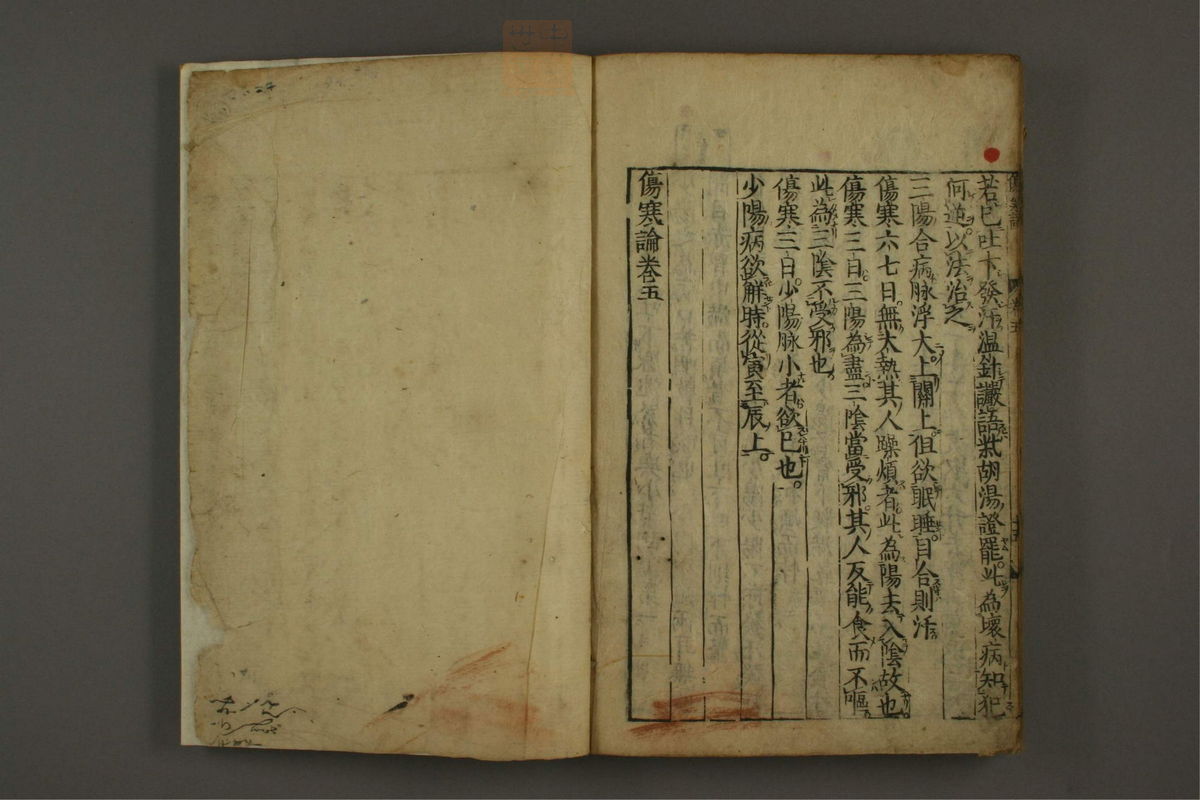 若已吐下發汗温針讝語柴胡湯證罷此為壞病知犯
何逆以法治之
三陽合病脉浮大上關上但欲眠睡目合則汗
傷寒六七日無大熱其人躁煩者此為陽去入陰故也
傷寒三日三陽為盡三陰當受邪其人反能食而不嘔
此為三陰不受邪也
傷寒三日少陽脉小者欲已也
少陽病欲解時從寅至辰上
傷寒論卷五